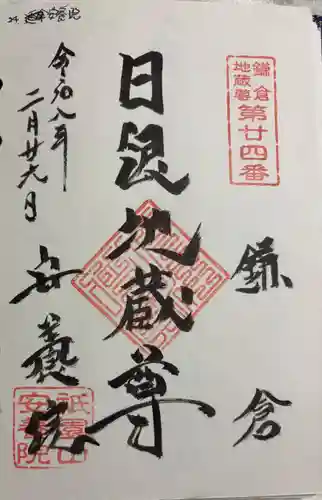 鎌倉
地蔵尊
第廿四番
鎌倉
日限地蔵尊
令和
二月廿
安養院
祇園山
安養院
24 安養院